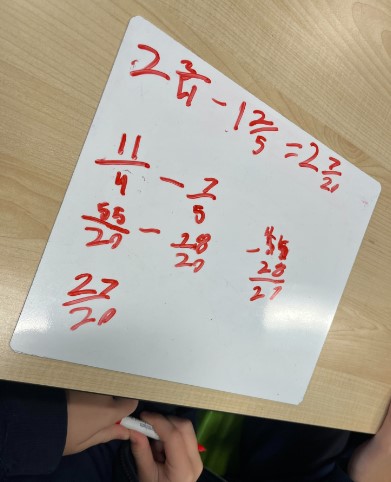 2 3/4 - 1 2/5 = 2 7/20
11/4 - 7/5
55/20 - 28/20
27/20
55
- 28
27